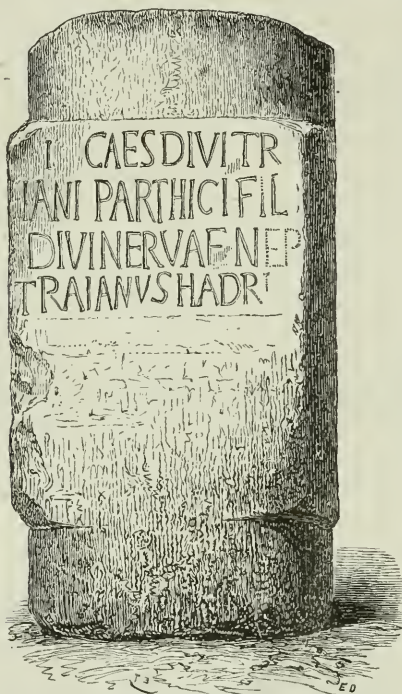 I CAES DIVI TR
IANI PARTHICI FIL
DIVI NERVAE NEP
TRAIANVS HADRI